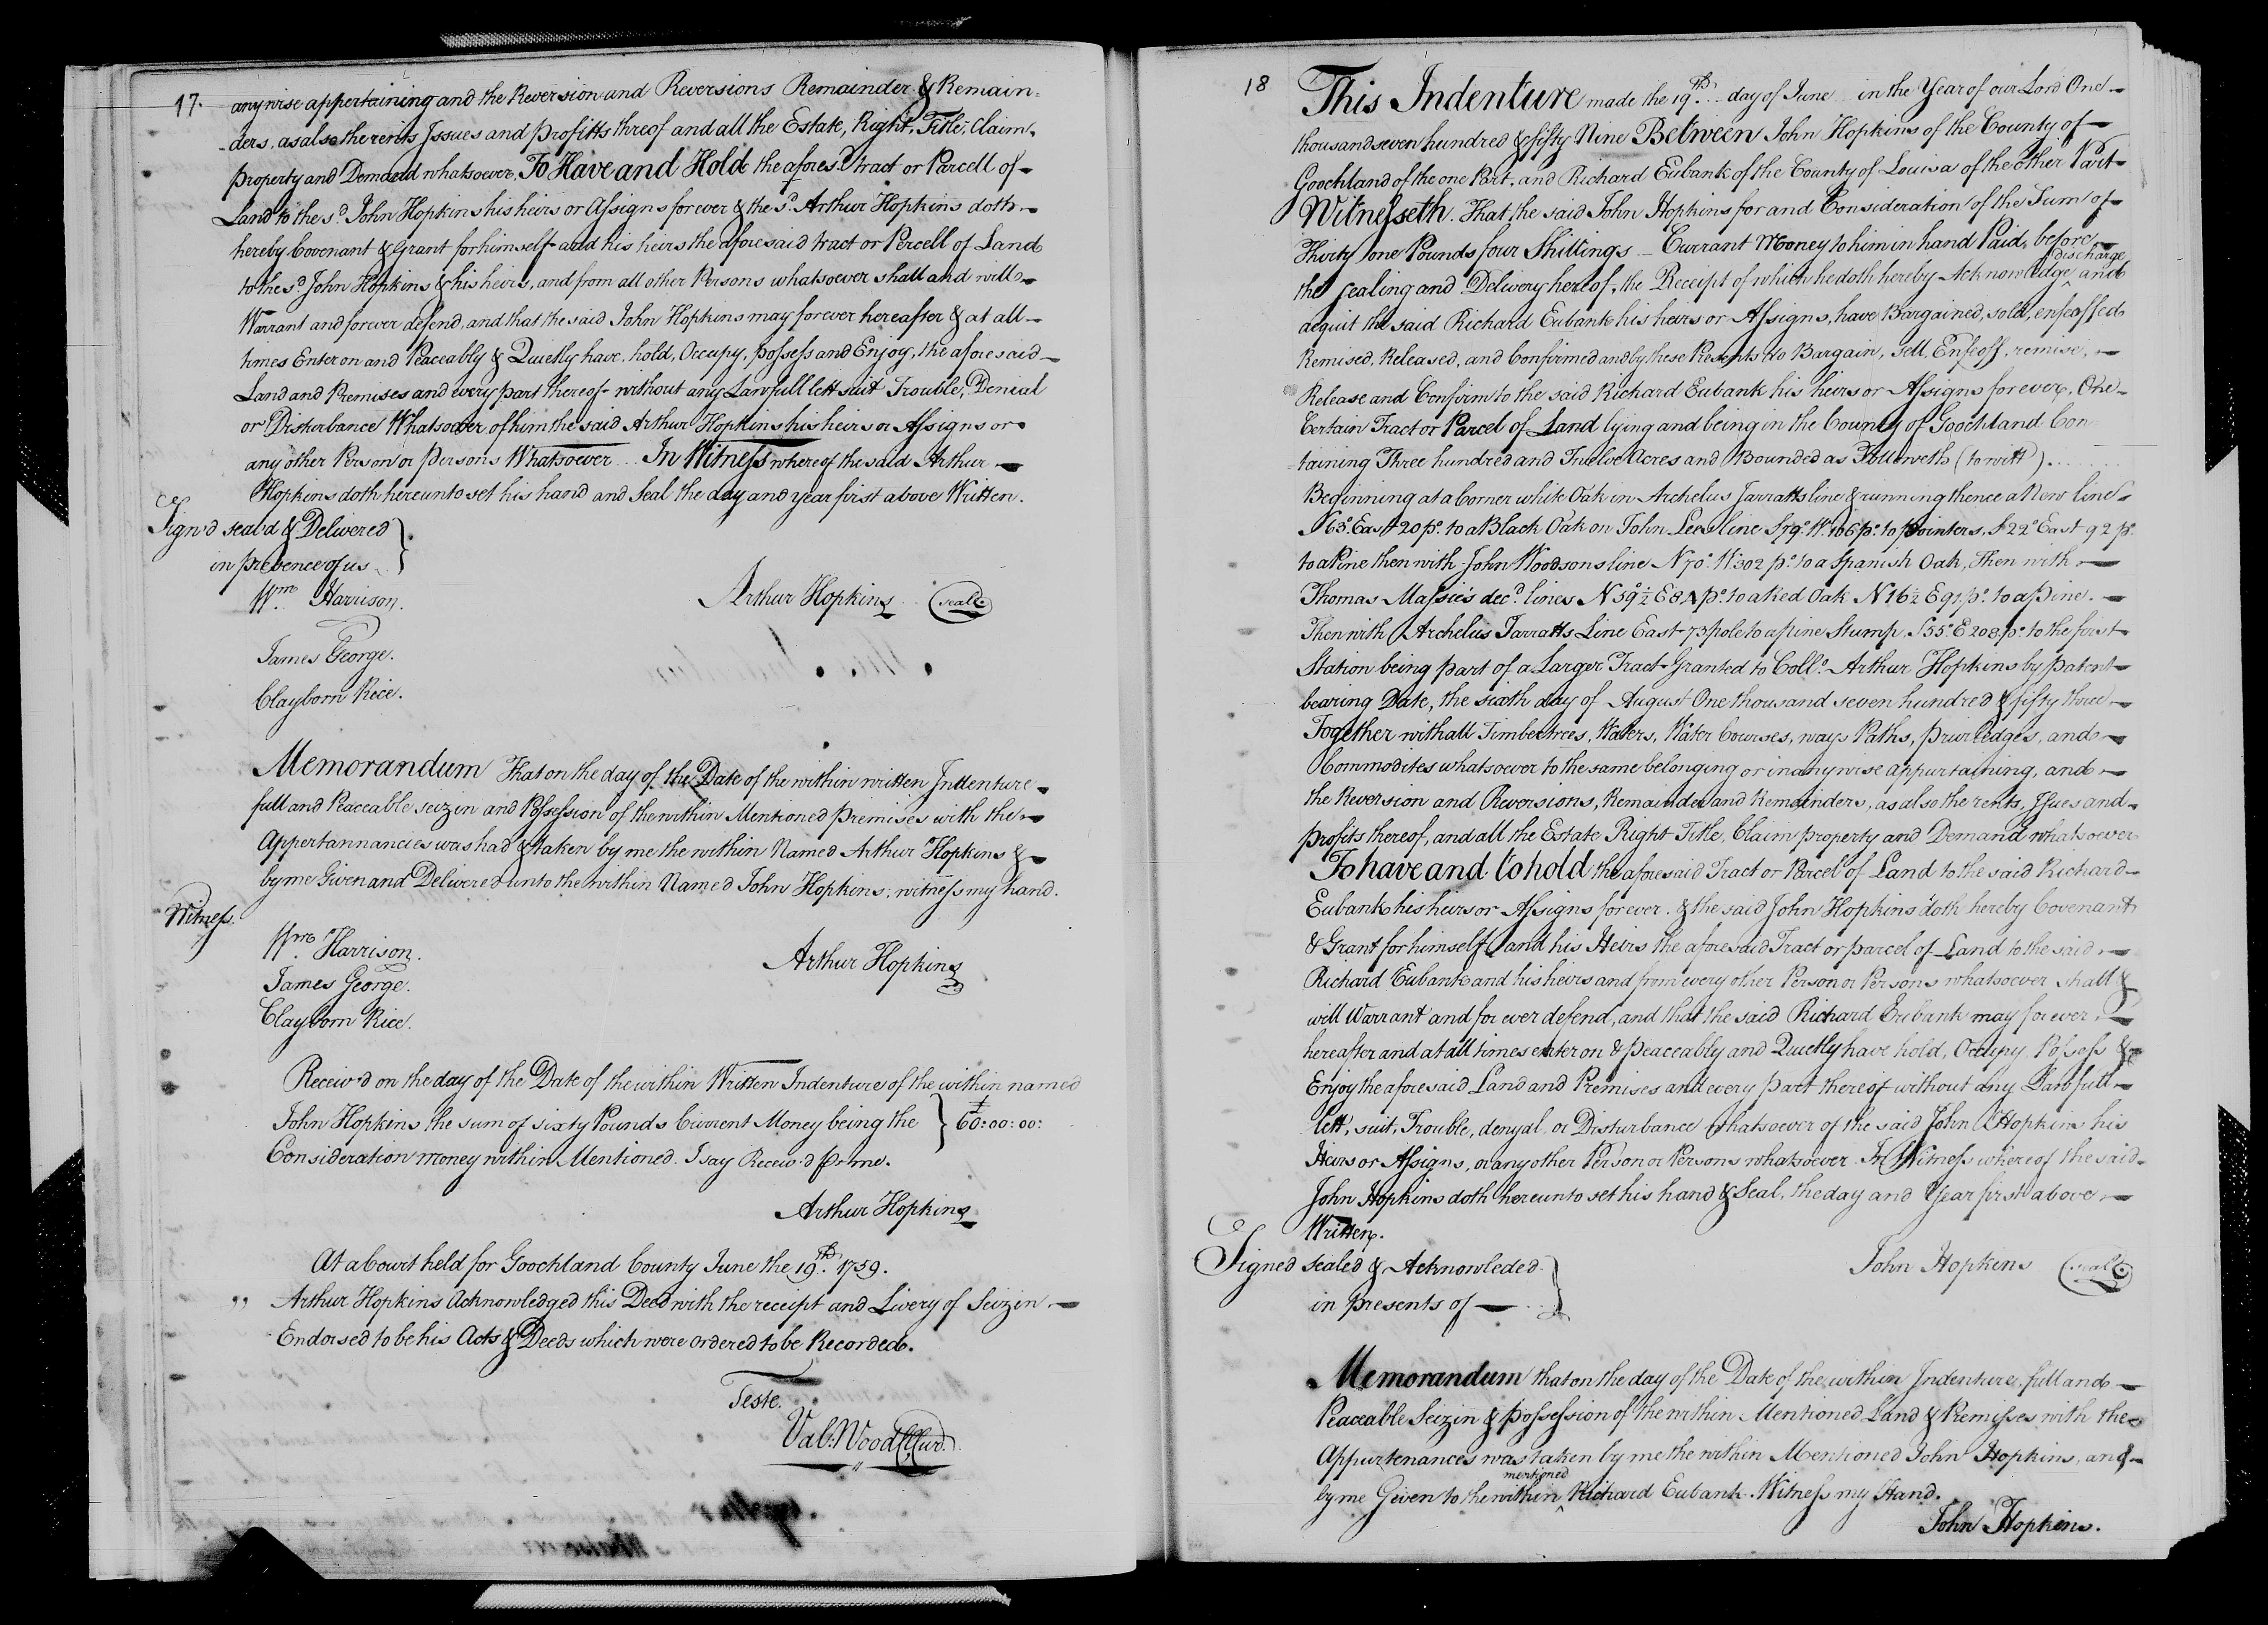 17.
anywise appertaining and the Reversion and Reversions Remainder & Remain=
-ders, as also the rents Issues and profitts threof and all the Estate, Right, Title, Claim,
property and Demand whatsoever, To Have and Hold the afores.d tract or Parcell of
Land to the s.d John Hopkins his heirs or Assigns forever & the s.d Arthur Hopkins doth
hereby Covenant & Grant for himself and his heirs the aforesaid tract or Percell of Land
to the s.d John Hopkins & his heirs, and from all other Persons whatsoever shall and will
Warrant and forever defend, and that the said John Hopkins may forever hereafter & at all
times Enter on and Peaceably & Quietly have, hold, Occupy, possess and Enjoy, the aforesaid
Land and Premises and every part thereof without any Lawfull lett suit Trouble, Denial
or Disturbance Whatsoever of him the said Arthur Hopkins his heirs or Assigns or
any other Person or persons Whatsoever In Witness whereof the said Arthur
Hopkins doth hereunto set his hand and Seal the day and year first above Written.
Sign'd seal'd & Delivered
in presence of us
Wm. Harrison.
Arthur Hopkins (seal)
James George.
Clayborn Rice.
Memorandum That on the day of the Date of the within written Indenture
full and Peaceable seizin and Possession of the within Mentioned premises with the
Appertannancies was had & taken by me the within Named Arthur Hopkins &
by me Given and Delivered unto the within Named John Hopkins; witness my hand.
Witness.
Wm. Harrison.
Arthur Hopkins
James George.
Clayborn Rice.
Receiv'd on the day of the Date of the within Written Indenture of the within named
John Hopkins the sum of sixty Pounds Current Money being the } £60:00:00:
Consideration money within Mentioned. I say Receiv'd pr me.
Arthur Hopkins
At a Court held for Goochland County June the 19.th 1759.
,, Arthur Hopkins Acknowledged this Deed with the receipt and Livery of Seizin
Endorsed to be his Acts & Deeds which were ordered to be Recorded.
Teste.
Val: Wood Cl Cur.
18
This Indenture made the 19.th day of June in the Year of our Lord One
thousand seven hundred & fifty Nine Between John Hopkins of the County of
Goochland of the one Part, and Richard Eubank of the County of Louisa of the other Part
Witnesseth. That the said John Hopkins for and Consideration of the Sum of
Thirty one Pounds four Shillings Currant Money to him in hand Paid, before
the sealing and Delivery hereof, the Receipt of which he doth hereby Acknowledge ^discharge and
acquit the said Richard Eubank his heirs or Assigns, have Bargained, sold, enfeoffed
Remised, Released, and Confirmed and by these Presents do Bargain, sell, Enfeoff, remise,
Release and Confirm to the said Richard Eubank his heirs or Assigns for ever, One
Certain Tract or Parcel of Land lying and being in the County of Goochland Con
-taining Three hundred and Twelve Acres and Bounded as Followeth (to witt)
Beginning at a Corner white Oak in Archelus Jarratts line & running thence a New line
N63° East 20 po. to a Black Oak on John Lees line S79° W. 106 po. to pointers, S22° East 92 p.
to a Pine then with John Woodsons line N70° W 302 po. to a Spanish Oak, Then with
Thomas Massie's dec.d lines N59½ E 84 po. to a Red Oak N16½ E 91 po. to a pine.
Then with Archelus Jarratts Line East 73 pole to a pine Stump, S55° E 208 po. to the first
Station being part of a Larger Tract Granted to Coll.o Arthur Hopkins by patent
bearing Date, the sixth day of August One thousand seven hundred & fifty three
Together with all Timbertrees, Waters, Water Courses, ways Paths, priviledges, and
Commodites whatsoever to the same belonging or in any wise appurtaining, and
the Reversion and Reversions, Remainder and Remainders, as also the rents, Issues and
profits thereof, and all the Estate Right Title, Claim property and Demand whatsoever
To have and to hold the aforesaid Tract or Parcel of Land to the said Richard
Eubank his heirs or Assigns forever. & the said John Hopkins doth hereby Covenant
& Grant for himself and his Heirs the aforesaid Tract or parcel of Land to the said
Richard Eubank and his heirs and from every other Person or Persons whatsoever shall &
will Warrant and for ever defend, and that the said Richard Eubank may forever
hereafter and at all times enter on & peaceably and Quietly have hold, Occupy Possess &
Enjoy the aforesaid Land and Premises and every part thereof without any Lawfull
lett, suit, Trouble, denyal, or Disturbance whatsoever of the said John Hopkins his
Heirs or Assigns, or any other Person or Persons whatsoever In Witness whereof the said
John Hopkins doth hereunto set his hand & Seal, the day and Year first above
Written.
Signed sealed & Acknowleded
John Hopkins (seal)
in presents of
Memorandum that on the day of the Date of the within Indenture, full and
Peaceable Seizin & possession of the within Mentioned Land & Premisses with the
Appurtenances was taken by me the within Mentioned John Hopkins, and
by me Given to the within ^mentioned Richard Eubank. Witness my Hand.
John Hopkins.